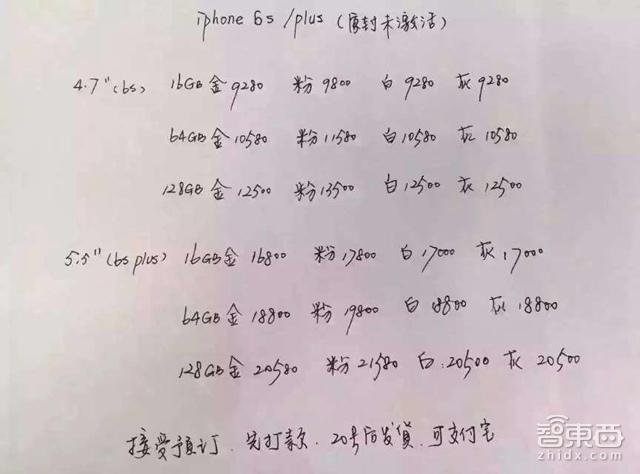 iphone 6s/plus(原封未激活)
4.7"(6s) 16GB 金9280 粉9800 白9280 灰9280
64GB 金10580 粉11580 白10580 灰10580
128GB 金12500 粉13500 白12500 灰12500
5.5"(6s plus) 16GB 金16800 粉17800 白17000 灰17000
64GB 金18800 粉19800 白18800 灰18800
128GB 金20580 粉21580 白20500 灰20500
接受预订.先打款.20号后发货.可支付宝
智東西
zhidx.com